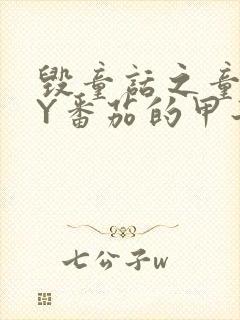 毁童话之童
Y番茄的甲
七公子w